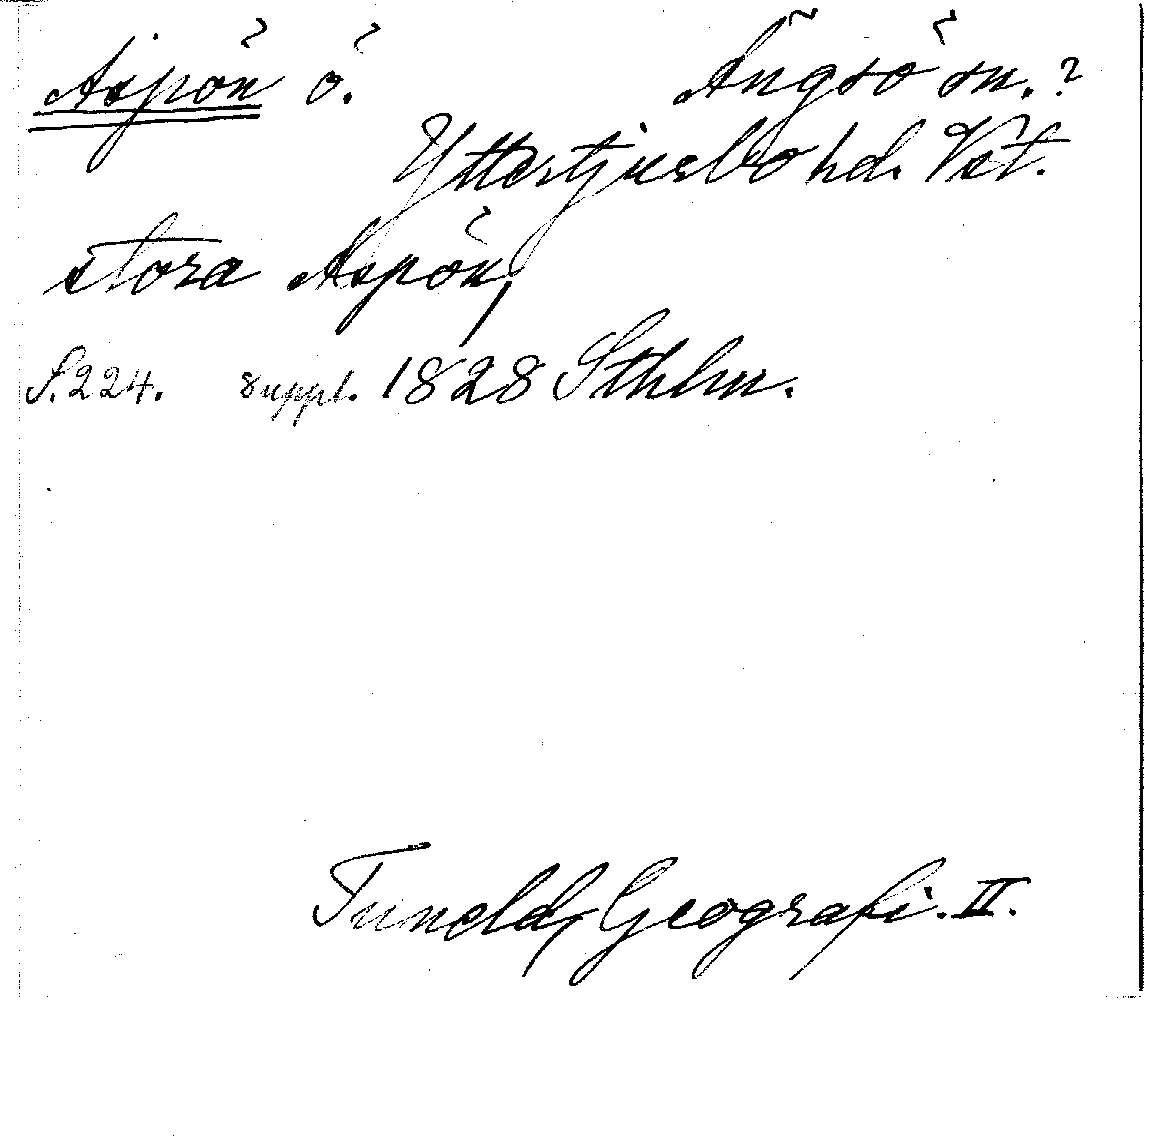 Aspön ö. Ängsö sn.?
Yttertjurbo hd. Vst.
stora Aspön,
S. 224. suppl. 1828 Sthlm.
Tuneld, Geografi. II.